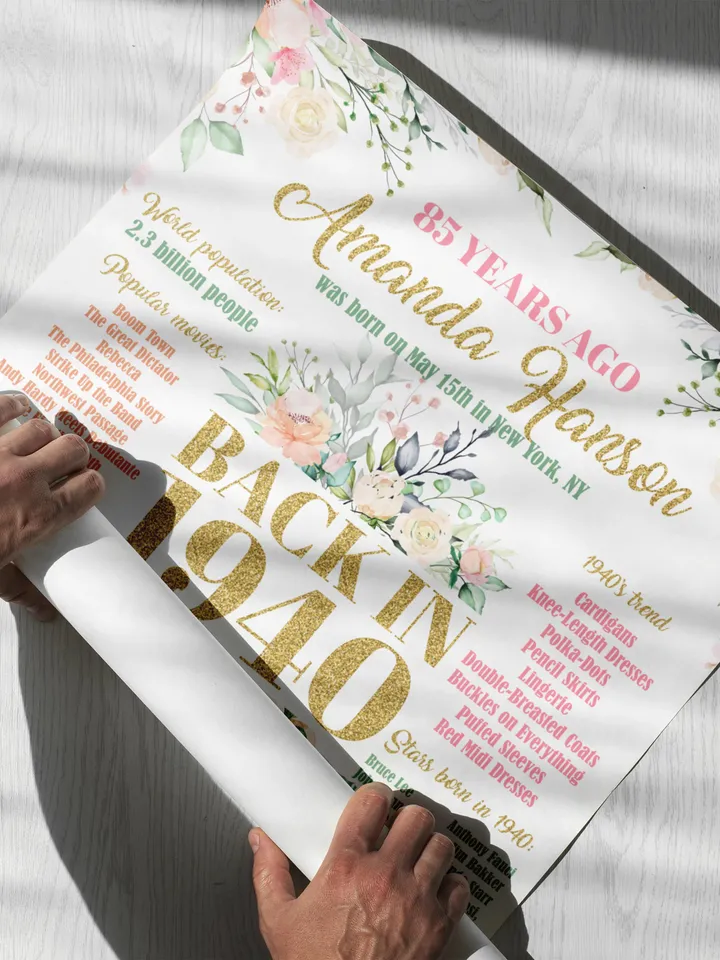 85 YEARS AGO
Amanda Hanson
was born on May 15th in New York, NY
World population:
2.3 billion people
Popular movies:
Boom Town
The Great Dictator
Rebecca
The Philadelphia Story
Strike Up The Band
Northwest Passage
Andy Hardy Meets Debutante
BACK IN
1940
1940's trend
Cardigans
Knee-Length Dresses
Polka-Dots
Pencil Skirts
Lingerie
Double-Breasted Coats
Buckles on Everything
Puffed Sleeves
Red Midi Dresses
Stars born in 1940:
Bruce Lee
Anthony Fauci
Bakker
Starr